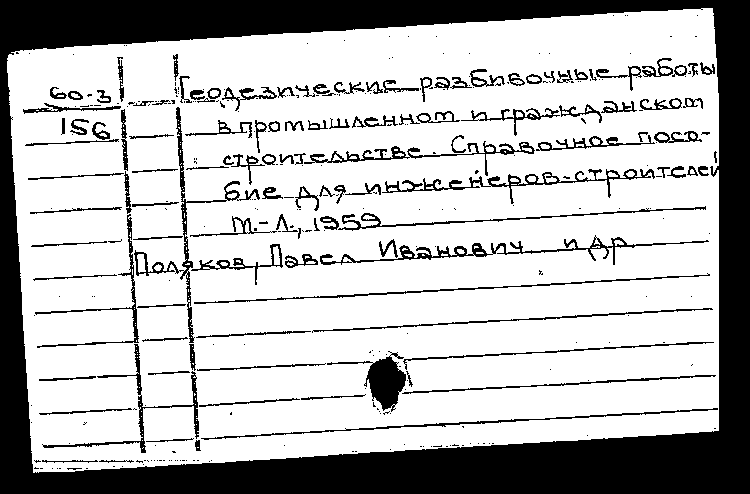 60-3
156
Геодезические разбивочные работы
в промышленном и гражданском
строительстве. Справочное посо-
бие для инженеров-строителей
М.-Л., 1959
Поляков, Павел Иванович и др.